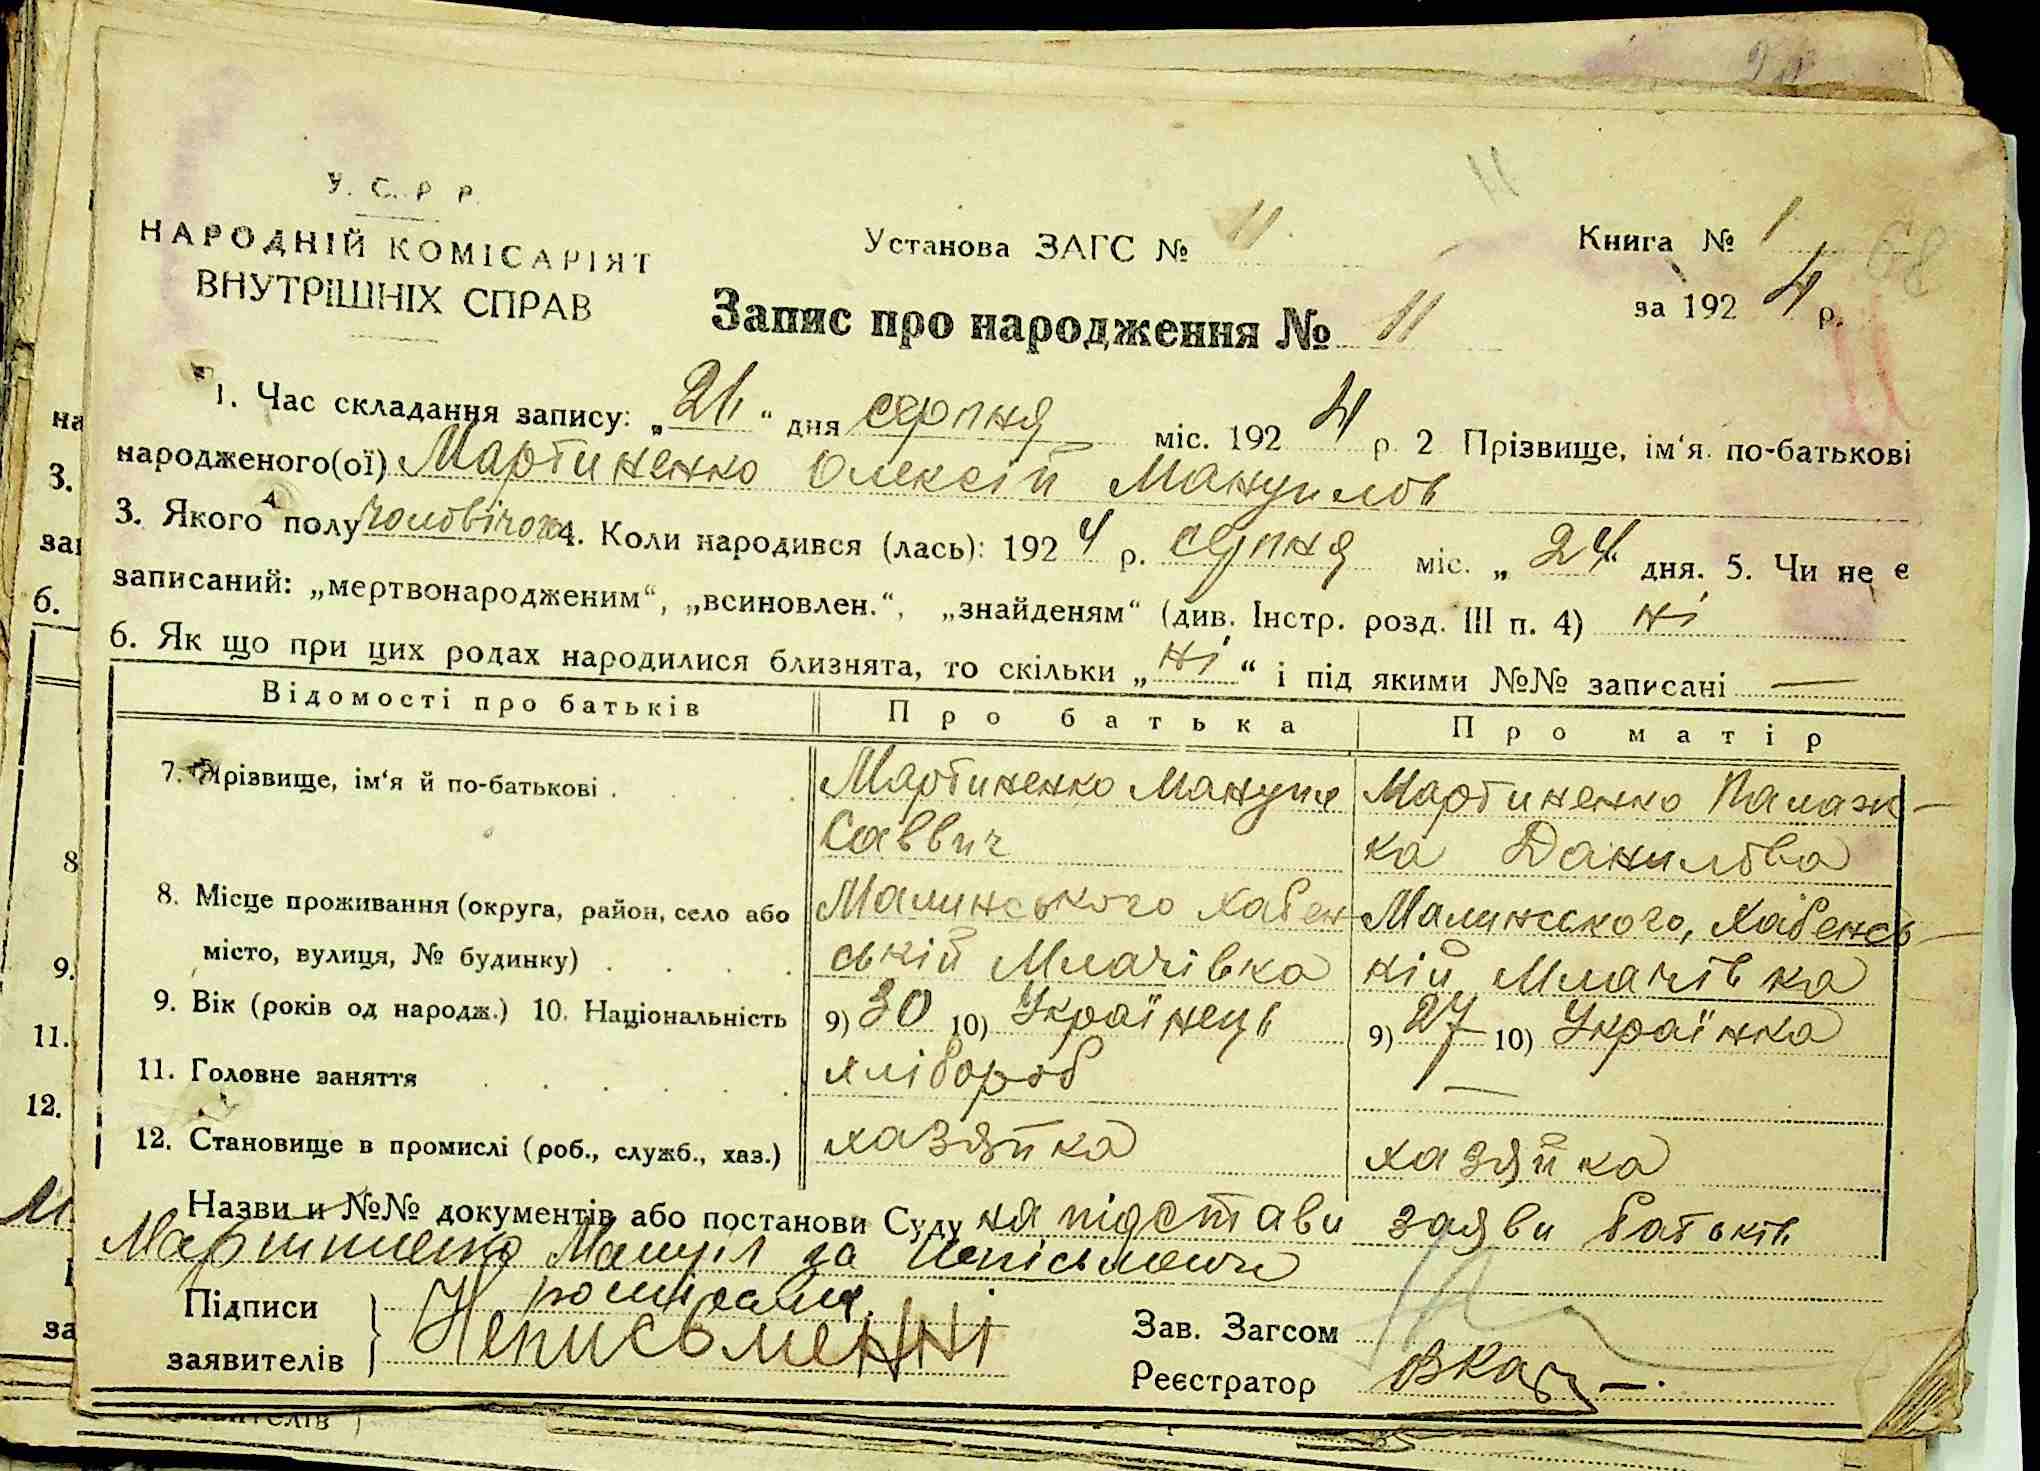 У. С. Р. Р.
НАРОДНІЙ КОМІСАРІЯТ
ВНУТРІШНІХ СПРАВ
Установа ЗАГС № 11
Книга № 1
за 1924 р.
68
11
Запис про народження № 11
1. Час складання запису: „ “ дня серпня міс. 1924 р. 2 Прізвище, ім‘я по-батькові
народженого(ої) Мартиненко Олексій Мануилов
3. Якого полу чоловічого 4. Коли народився (лась): 1924 р. серпня міс. „24“ дня. 5. Чи не є
записаний: „мертвонародженим“, „всиновлен.“, „знайденям“ (див. Інстр. розд. III п. 4) ні
6. Як що при цих родах народилися близнята, то скільки „ні“ і під якими №№ записані —
Відомості про батьків Про батька Про матір
7. Прізвище, ім‘я й по-батькові . Мартиненко Мануил Мартиненко Палаж-
Саввич ка Данилова
8. Місце проживання (округа, район, село або Малинського Хабен- Малинського, Хабенсь-
місто, вулиця, № будинку) ській Млачівка кій Млачівка
9. Вік (років од народж.) 10. Національність 9) 30 10) Українець 9) 27 10) Українка
11. Головне заняття хлібороб —
12. Становище в промислі (роб., служб., хаз.) хазяйка хазяйка
Назви и №№ документів або постанови Суду на підстави заяви батьків
Мартиненко Мануіл за
Підписи
заявителів } Неписьменні
Зав. Загсом
Реєстратор